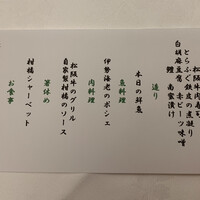 松阪牛肉寿司
とらふぐ鉄皮の煮凝り
白胡麻豆腐 赤ピーツ味噌
鰹 南蛮漬け
造り
本日の鮮魚
魚料理
伊勢海老のポシェ
肉料理
松阪牛のグリル
自家製柑橘のソース
箸休め
柑橘シャーベット
お食事